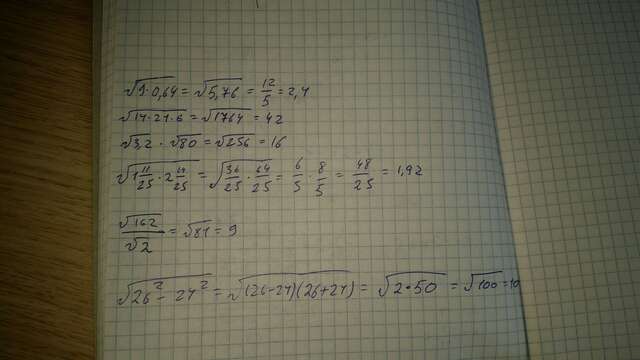 √9·0,64 = √5,76 = 12/5 = 2,4
√14·21·6 = √1764 = 42
√3,2 · √80 = √256 = 16
√1 11/25 · 2 14/25 = √36/25 · 64/25 = 6/5 · 8/5 = 48/25 = 1,92
√162/√2 = √81 = 9
√26² - 24² = √(26-24)(26+24) = √2·50 = √100 = 10